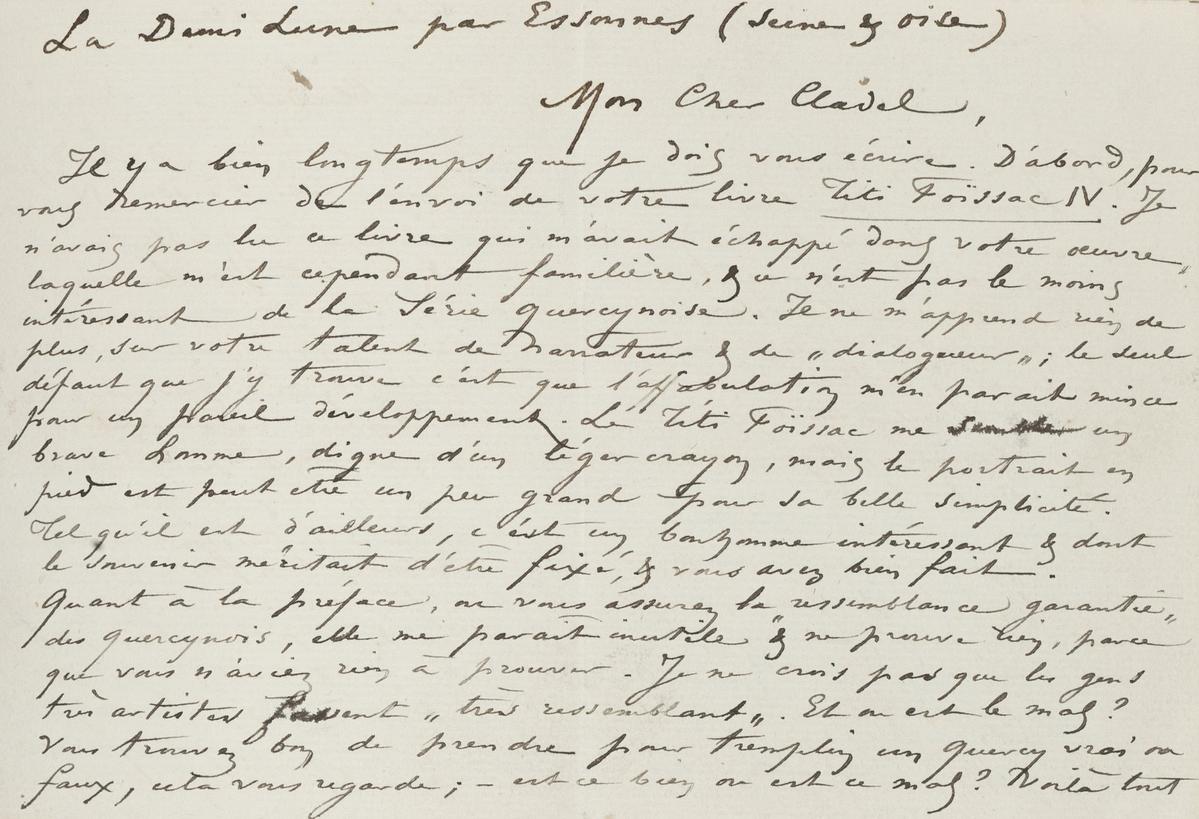 La Demi Lune par Essonnes (Seine & Oise)
Mon Cher Cladel,
Il y a bien longtemps que je dois vous écrire. D'abord, pour
vous remercier de l'envoi de votre livre Titi Foïssac IV. Je
n'avais pas lu ce livre qui m'avait échappé dans votre œuvre,
laquelle m'est cependant familière, & ce n'est pas le moins
intéressant de la Série quercynoise. Il ne m'apprend rien de
plus, sur votre talent de narrateur & de „dialogueur"; le seul
défaut que j'y trouve c'est que l'affabulation m'en parait mince
pour un pareil développement. Le Titi Foïssac me semble un
brave homme, digne d'un léger crayon, mais le portrait en
pied est peut etre un peu grand pour sa belle simplicité.
Tel qu'il est d'ailleurs, c'est un bonhomme intéressant & dont
le souvenir méritait d'être fixé, & vous avez bien fait.
Quant à la préface, ou vous assurez la ressemblance garantie„
des quercynois, elle me parait inutile & ne prouve rien, parce
que vous n'aviez rien à prouver. Je ne crois pas que les gens
très artistes fassent „très ressemblant„. Et ou est le mal?
Vous trouvez bon de prendre pour tremplin un Quercy vrai ou
faux, cela vous regarde; - est ce bien ou est ce mal? Voilà tout